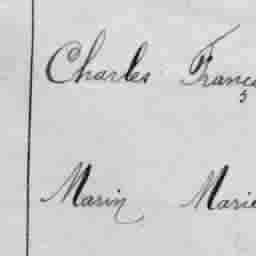 Charles Franç
Marin Marie